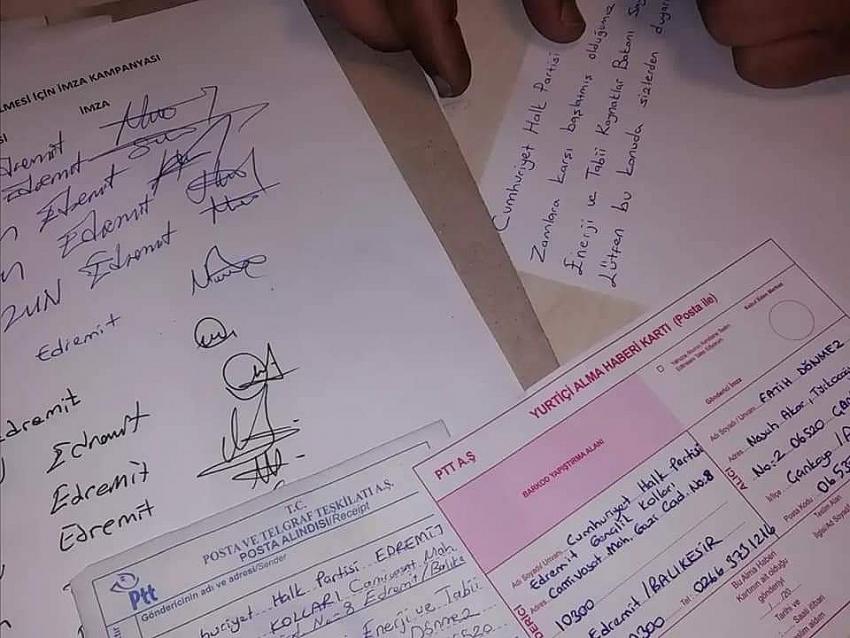 LMESİ İÇİN İMZA KAMPANYASI
İMZA
Edremit
Edremit
Edremit
Edremit
ZUN Edremit
Edremit
Edremit
Edremit
Edremit
Edremit
Cumhuriyet Halk Partisi
Zamlara karşı başlatmış olduğumuz
Enerji ve Tabii Kaynaklar Bakanı
Lütfen bu konuda sizlerden
T.C.
POSTA VE TELGRAF TEŞKİLATI A.Ş.
POSTA ALINDISI/Receipt
Ptt
Göndericinin adı ve adresi/Sender
huriyet Halk Partisi EDREMİT
KOLLARI Camivasat Mah.
No=8 Edremit/Balıke
Enerji ve Tabii
Dönmez
PTT A.Ş
YURTİÇİ ALMA HABERİ KARTI (Posta ile)
BARKOD YAPIŞTIRMA ALANI
Kabul Eden Merkez
Gönderici İmza
Adı Soyadı/Unvanı Cumhuriyet Halk Partisi
Edremit Gençlik Kolları
Adres Camivasat Mah. Gazi Cad. No:8
10300
Edremit /BALIKESİR
Tel 0266 3731216
ALICI
Adı Soyadı / Unvanı FATİH DÖNMEZ
Adres Nasuh Akar,
No:2 06520
İl/İlçe Çankaya
Posta Kodu
Teslim Alan
Bu Alma Haberi
Kartının ait olduğu
gönderiyi
Tarihi ve
Saati itibari